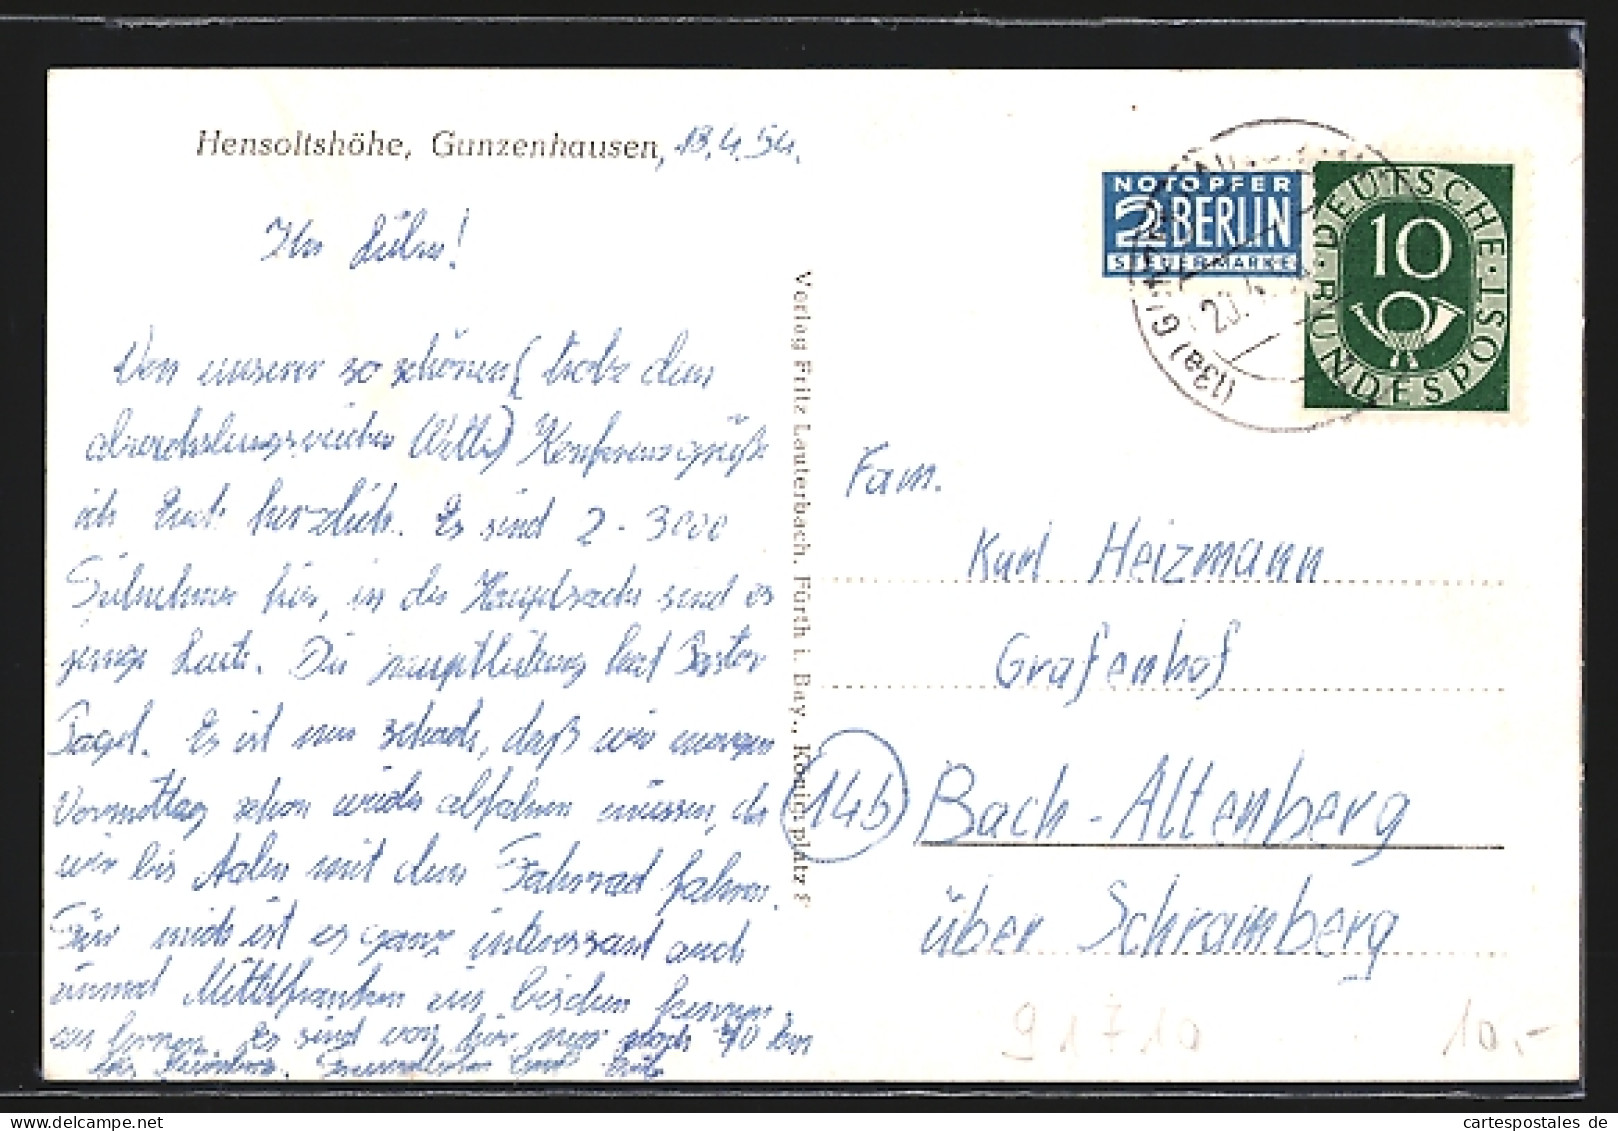 Hensoltshöhe, Gunzenhausen, 18.4.54.
Ihr Lieben!
Von unserer so schönen (trotz dem
abwechslungsreichen Wetter) Konferenz grüße
ich Euch herzlich. Es sind 2-3000
Teilnehmer hier, in der Hauptsache sind es
junge Leute. Die Hauptleitung hat Pastor
Pagel. Es ist nur schade, daß wir morgen
Vormittag schon wieder abfahren müssen, da
wir bis Aalen mit dem Fahrrad fahren.
Für mich ist es ganz interessant auch
einmal Mittelfranken ein bischen kennen
zu lernen. Es sind von hier nur noch 70 km
bis Nürnberg.
Verlag Fritz Lauterbach, Fürth i. Bay., Königsplatz 8
NOTOPFER
2 BERLIN
STEUERMARKE
DEUTSCHE BUNDESPOST
10
(13a) GUNZENHAUSEN
20.4.
Fam.
Kurl Heizmann
Grafenhof
14b
Bach-Altenberg
über Schramberg
91710
10.-
cartespostales de